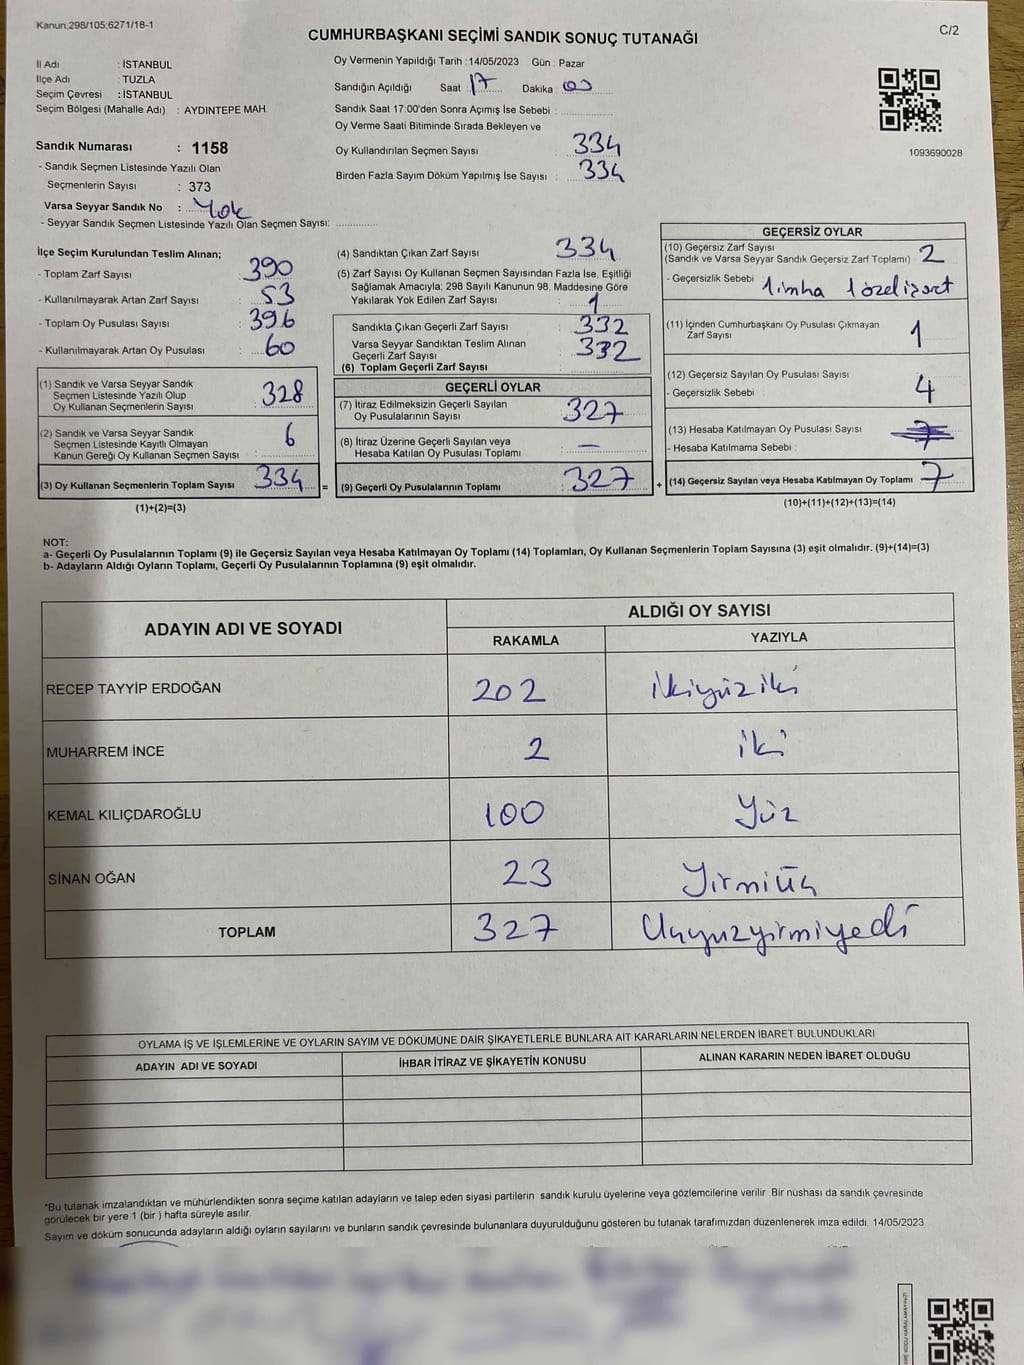 Kanun,298/105,6271/18-1
C/2
CUMHURBAŞKANI SEÇİMİ SANDIK SONUÇ TUTANAĞI
İl Adı : İSTANBUL
İlçe Adı : TUZLA
Seçim Çevresi : İSTANBUL
Seçim Bölgesi (Mahalle Adı) : AYDINTEPE MAH.
Sandık Numarası : 1158
- Sandık Seçmen Listesinde Yazılı Olan
Seçmenlerin Sayısı : 373
Varsa Seyyar Sandık No : Yok
- Seyyar Sandık Seçmen Listesinde Yazılı Olan Seçmen Sayısı:
Oy Vermenin Yapıldığı Tarih :14/05/2023 Gün : Pazar
Sandığın Açıldığı Saat : 17 Dakika : 00
Sandık Saat 17:00'den Sonra Açımış İse Sebebi :
Oy Verme Saati Bitiminde Sırada Bekleyen ve
Oy Kullandırılan Seçmen Sayısı : 334
Birden Fazla Sayım Döküm Yapılmış İse Sayısı : 334
1093690028
İlçe Seçim Kurulundan Teslim Alınan;
- Toplam Zarf Sayısı : 390
- Kullanılmayarak Artan Zarf Sayısı : 53
- Toplam Oy Pusulası Sayısı : 396
- Kullanılmayarak Artan Oy Pusulası : 60
(1) Sandık ve Varsa Seyyar Sandık
Seçmen Listesinde Yazılı Olup
Oy Kullanan Seçmenlerin Sayısı : 328
(2) Sandık ve Varsa Seyyar Sandık
Seçmen Listesinde Kayıtlı Olmayan
Kanun Gereği Oy Kullanan Seçmen Sayısı : 6
(3) Oy Kullanan Seçmenlerin Toplam Sayısı : 334 =
(1)+(2)=(3)
(4) Sandıktan Çıkan Zarf Sayısı : 334
(5) Zarf Sayısı Oy Kullanan Seçmen Sayısından Fazla İse, Eşitliği
Sağlamak Amacıyla; 298 Sayılı Kanunun 98. Maddesine Göre
Yakılarak Yok Edilen Zarf Sayısı : 1
Sandıkta Çıkan Geçerli Zarf Sayısı : 332
Varsa Seyyar Sandıktan Teslim Alınan
Geçerli Zarf Sayısı : 332
(6) Toplam Geçerli Zarf Sayısı :
GEÇERLİ OYLAR
(7) İtiraz Edilmeksizin Geçerli Sayılan
Oy Pusulalarının Sayısı : 327
(8) İtiraz Üzerine Geçerli Sayılan veya
Hesaba Katılan Oy Pusulası Toplamı : —
(9) Geçerli Oy Pusulalarının Toplamı : 327 +
GEÇERSİZ OYLAR
(10) Geçersiz Zarf Sayısı
(Sandık ve Varsa Seyyar Sandık Geçersiz Zarf Toplamı) : 2
- Geçersizlik Sebebi : 1 imha 1 özel işaret
(11) İçinden Cumhurbaşkanı Oy Pusulası Çıkmayan
Zarf Sayısı : 1
(12) Geçersiz Sayılan Oy Pusulası Sayısı
- Geçersizlik Sebebi : 4
(13) Hesaba Katılmayan Oy Pusulası Sayısı
- Hesaba Katılmama Sebebi :
(14) Geçersiz Sayılan veya Hesaba Katılmayan Oy Toplamı : 7
(10)+(11)+(12)+(13)=(14)
NOT:
a- Geçerli Oy Pusulalarının Toplamı (9) ile Geçersiz Sayılan veya Hesaba Katılmayan Oy Toplamı (14) Toplamları, Oy Kullanan Seçmenlerin Toplam Sayısına (3) eşit olmalıdır. (9)+(14)=(3)
b- Adayların Aldığı Oyların Toplamı, Geçerli Oy Pusulalarının Toplamına (9) eşit olmalıdır.
ADAYIN ADI VE SOYADI
ALDIĞI OY SAYISI
RAKAMLA YAZIYLA
RECEP TAYYİP ERDOĞAN 202 ikiyüziki
MUHARREM İNCE 2 iki
KEMAL KILIÇDAROĞLU 100 Yüz
SİNAN OĞAN 23 Yirmiüç
TOPLAM 327 Üçyüzyirmiyedi
OYLAMA İŞ VE İŞLEMLERİNE VE OYLARIN SAYIM VE DÖKÜMÜNE DAİR ŞİKAYETLERLE BUNLARA AİT KARARLARIN NELERDEN İBARET BULUNDUKLARI
ADAYIN ADI VE SOYADI İHBAR İTİRAZ VE ŞİKAYETİN KONUSU ALINAN KARARIN NEDEN İBARET OLDUĞU
*Bu tutanak imzalandıktan ve mühürlendikten sonra seçime katılan adayların ve talep eden siyasi partilerin sandık kurulu üyelerine veya gözlemcilerine verilir Bir nüshası da sandık çevresinde
görülecek bir yere 1 (bir ) hafta süreyle asılır.
Sayım ve döküm sonucunda adayların aldığı oyların sayılarını ve bunların sandık çevresinde bulunanlara duyurulduğunu gösteren bu tutanak tarafımızdan düzenlenerek imza edildi. 14/05/2023